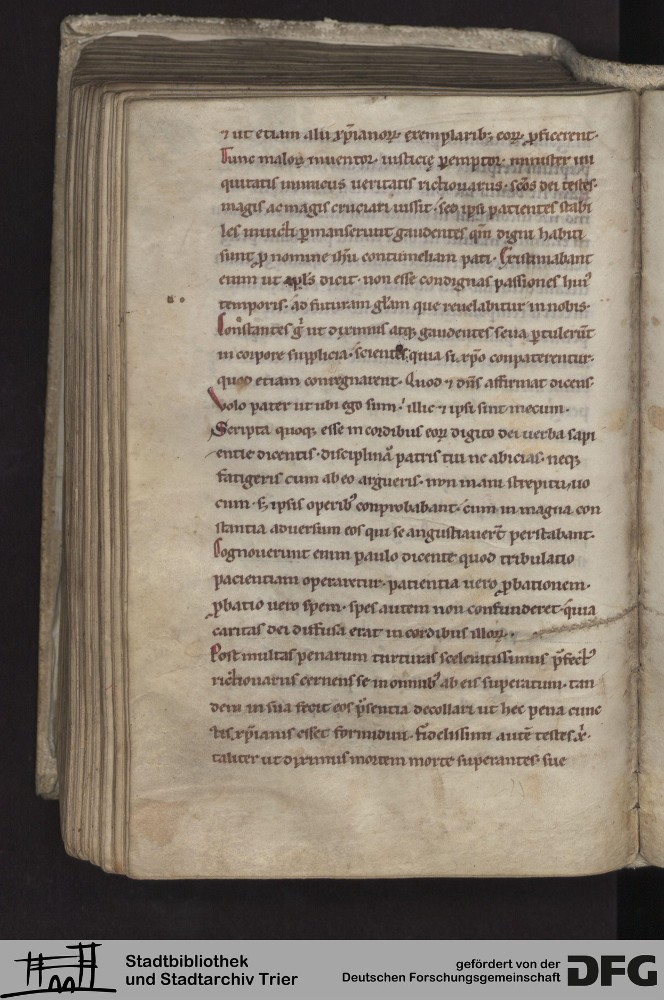 ⁊ ut etiam alii xp̄ianoꝝ exemplarib; eoꝝ ꝓficerent·
Tunc maloꝝ inuentor· iusticię pemptor· minister ini
quitatis inimicus ueritatis rictiouarus· scōs dei testes·
magis ac magis cruciari iussit· sed ipsi patientes stabi
les inuicti ꝑmanserunt gaudentes qm̄ digni habiti
sunt ꝓ nomine ihū contumeliam pati· Existimabant
enim ut apl̄s dicit· non esse condignas passiones hui᾽
temporis· ad futuram gl̄am que reuelabitur in nobis·
Constantes g̓ ut diximus atq; gaudentes seua ꝑtulerūt
in corpore supplicia· scientes quia si xp̄o conpaterentur·
quod etiam conregnarent· Quod ⁊ dn̄s affirmat dicens·
Volo pater ut ubi ego sum· illic ⁊ ipsi sint mecum·
Scripta quoq; esse in cordibus eoꝝ digito dei uerba sapi
entie dicentis· disciplinā patris tui ne abicias· neq;
fatigeris cum ab eo argueris· non inani strepitu uo
cum· s; ipsis operib᾽ conprobabant· cum in magna con
stantia aduersum eos qui se angustiauer̄t perstabant·
Cognouerunt enim paulo dicente quod tribulatio
pacientiam operaretur· patientia uero ꝓbationem·
ꝓbatio uero spem· spes autem non confunderet· quia
caritas dei diffusa erat in cordibus illoꝝ·
Post multas penarum turturas scelentissimus p̄fect᾽
rictiouarus cernens se in omnib᾽ ab eis superatum· tan
dem in sua fecit eos p̄sentia decollari ut hec pena cunc
tis xp̄ianis esset formidini· Fidelissimi autē testes x̄·
taliter ut diximus mortem morte superantes· sue
Stadtbibliothek
und Stadtarchiv Trier
gefördert von der
Deutschen Forschungsgemeinschaft
DFG